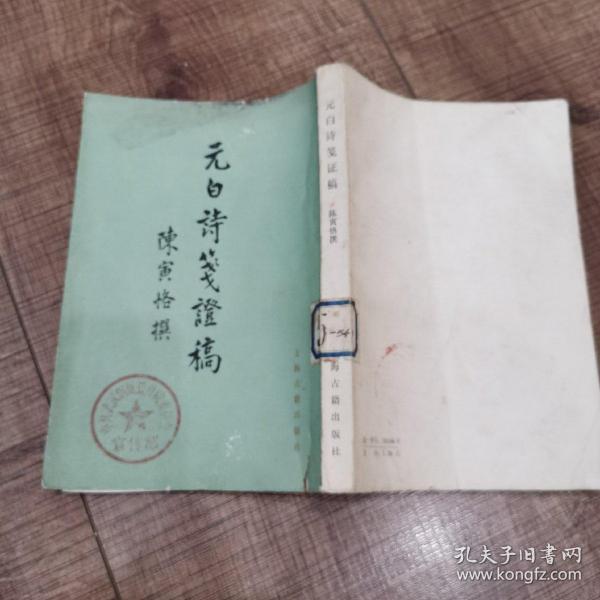 元白詩箋證稿
陳寅恪撰
上海古籍出版社
宣传部
元白诗笺证稿
陈寅恪撰
5-54
海古籍出版社
孔夫子旧书网
www.kongfz.com